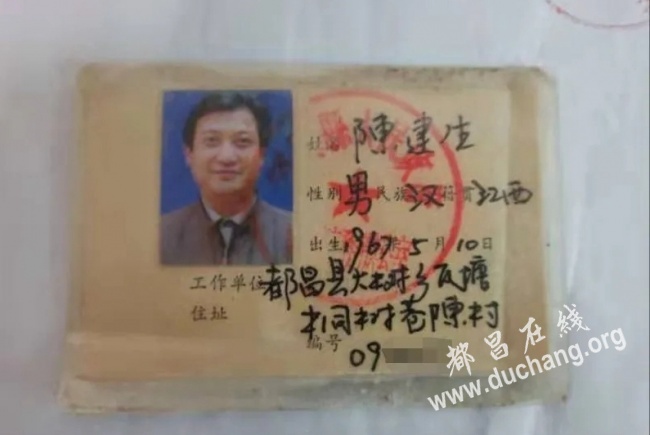 姓名 陳建生
性别 男 民族 汉 籍贯 江西
出生 1967年 5月 10日
工作单位 都昌县大树乡瓦塘
住址 桐树巷陳村
编号 09
都昌在綫
www.duchang.org